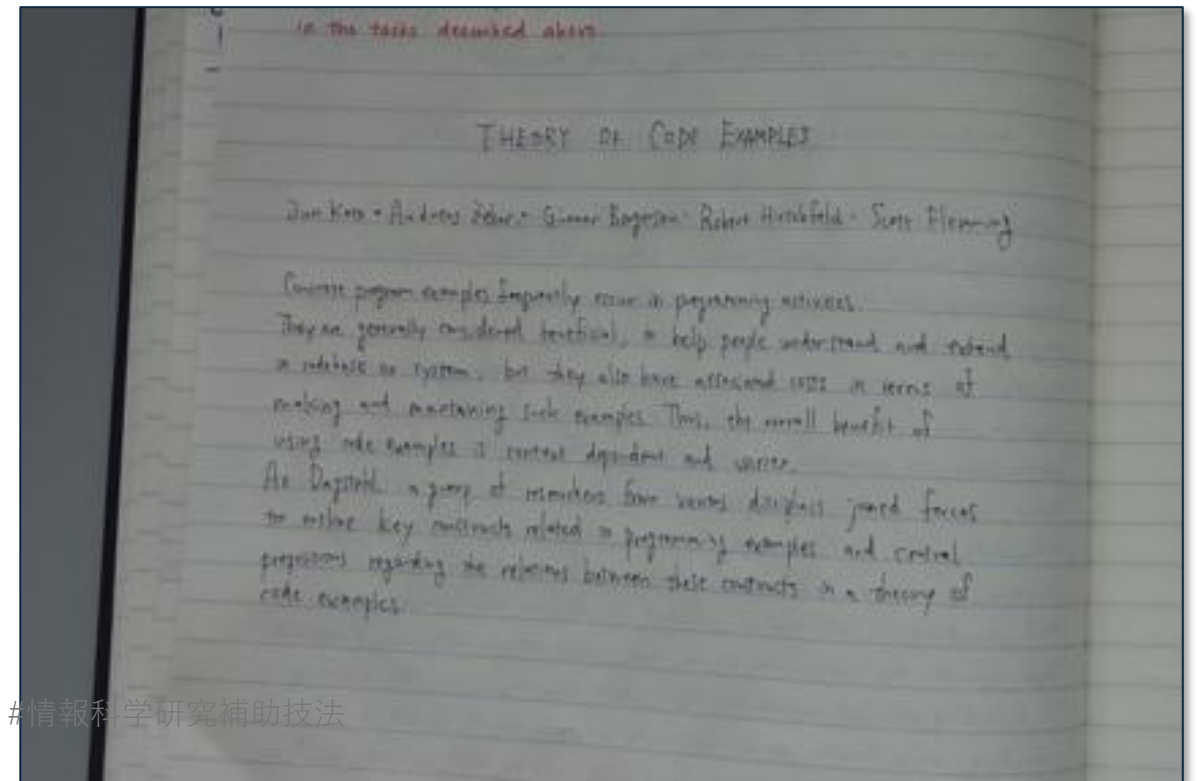 in the tasks described above.
THEORY OF CODE EXAMPLES
Jun Kato · Andreas Zeller · Gunnar Bergersen · Robert Hirschfeld · Scott Fleming
Concrete program examples frequently occur in programming activities.
They are generally considered beneficial, to help people understand and extend
a codebase or system, but they also have associated costs in terms of
making and maintaining such examples. Thus, the overall benefit of
using code examples is context dependent and varies.
At Dagstuhl, a group of researchers from various disciplines joined forces
to outline key constructs related to programming examples and central
propositions regarding the relations between these constructs in a theory of
code examples.
#情報科学研究補助技法